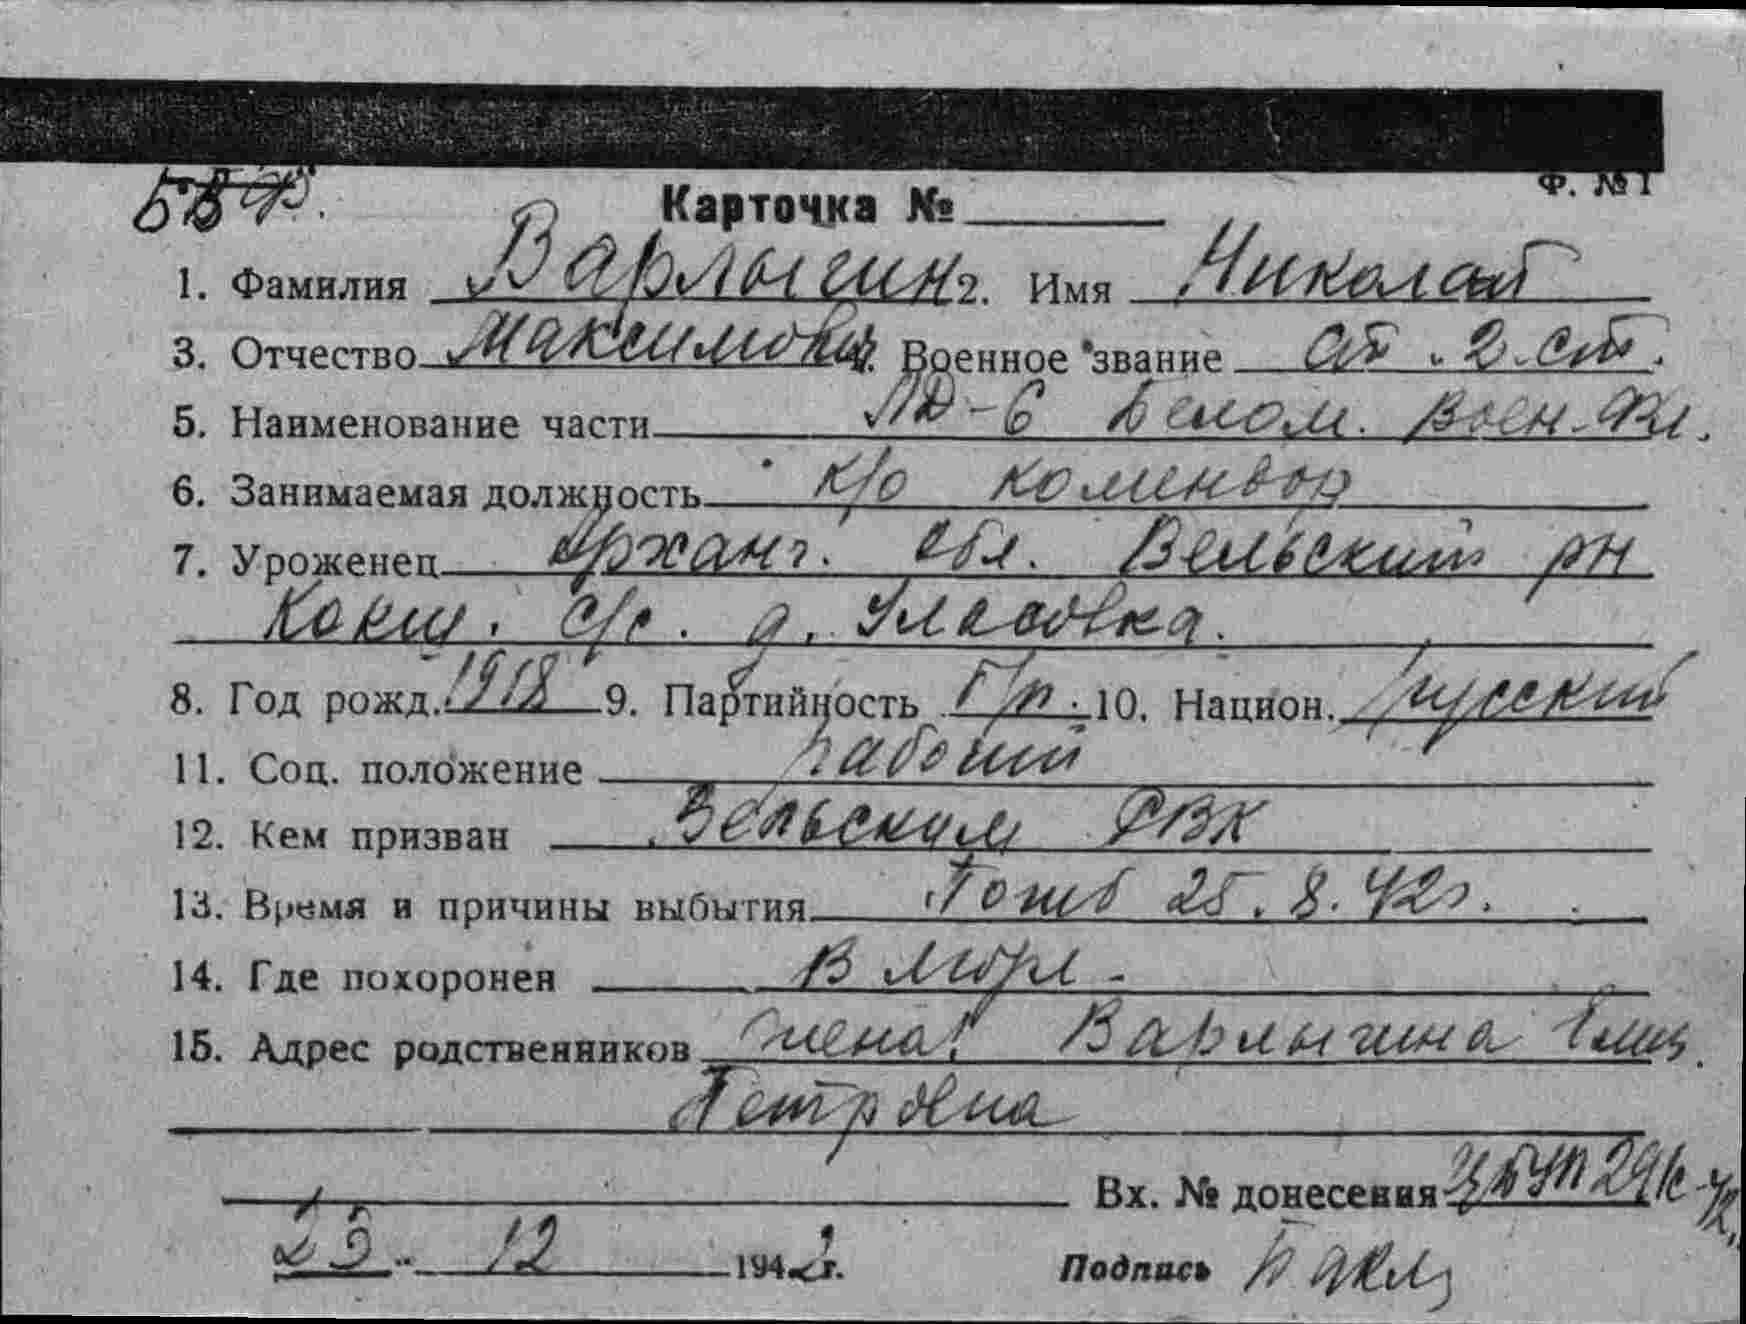 БВФ.
Ф. №1
Карточка №
1. Фамилия Варлыгин 2. Имя Николай
3. Отчество Максимович. Военное звание ст. 2. ст.
5. Наименование части ЛД-6 Белом. Воен. Фл.
6. Занимаемая должность к/о комендор
7. Уроженец Арханг. обл. Вельский рн
Кокш. с/с. д. Уласовка.
8. Год рожд. 1918 9. Партийность б/п. 10. Национ. русский
11. Соц. положение рабочий
12. Кем призван Вельским РВК
13. Время и причины выбытия Погиб 25. 8. 42г.
14. Где похоронен В море -
15. Адрес родственников жена: Варлыгина Елиз.
Петровна
Вх. № донесения
12 194 г. Подпись